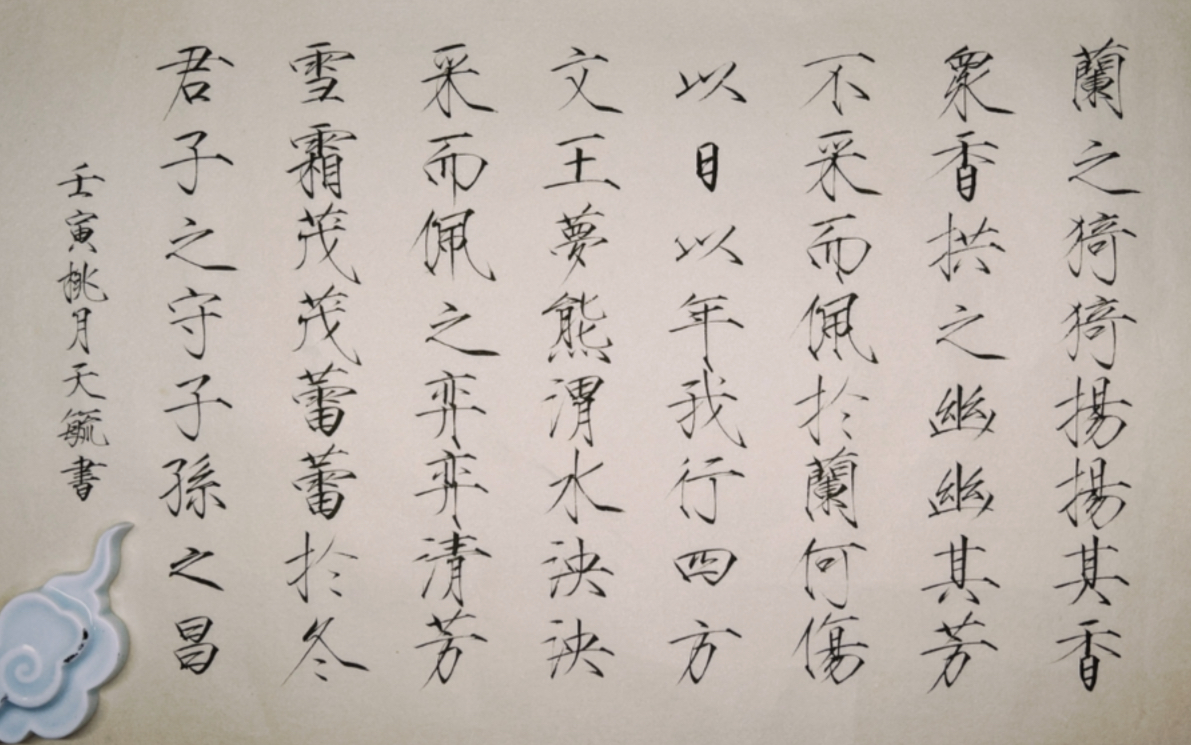 蘭之猗猗揚揚其香
衆香拱之幽幽其芳
不采而佩於蘭何傷
以日以年我行四方
文王夢熊渭水泱泱
采而佩之弈弈清芳
雪霜茂茂蕾蕾於冬
君子之守子孫之昌
壬寅桃月天毓書